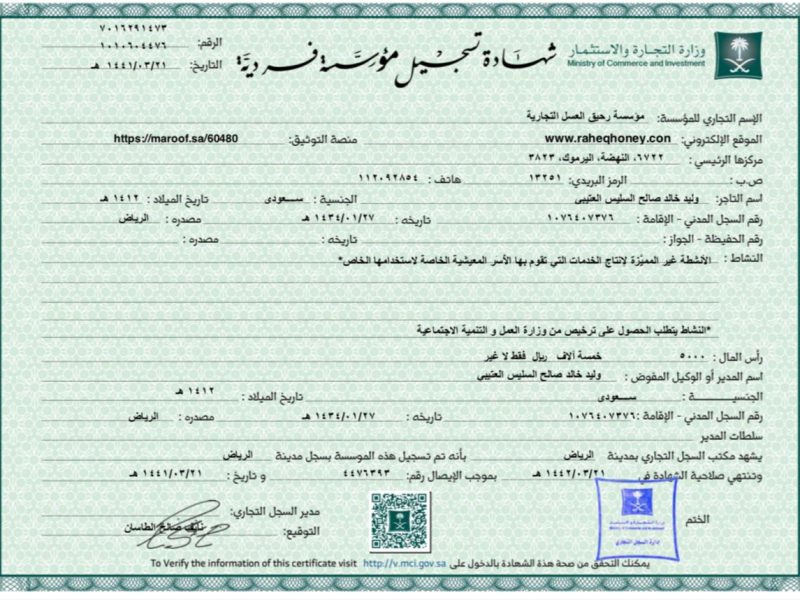 وزارة التجارة والاستثمار
Ministry of Commerce and Investment
شهادة تسجيل مؤسسة فردية
٧٠١٦٢٩١٤٧٣
الرقم: ١٠١٠٦٠٤٤٧٦
التاريخ: ١٤٤١/٠٣/٢١ هـ
الإسم التجاري للمؤسسة: مؤسسة رحيق العسل التجارية
الموقع الإلكتروني: www.raheqhoney.con منصة التوثيق: https://maroof.sa/60480
مركزها الرئيسي: ٦٧٢٢، النهضة، اليرموك، ٣٨٢٣
ص.ب: الرمز البريدي: ١٣٢٥١ هاتف: ١١٢٠٩٢٨٥٤
اسم التاجر: وليد خالد صالح السليس العتيبي الجنسية: سعودى تاريخ الميلاد: ١٤١٢ هـ
رقم السجل المدني - الإقامة: ١٠٧٦٤٠٧٣٧٦ تاريخه: ١٤٣٤/٠١/٢٧ هـ مصدره: الرياض
رقم الحفيظة - الجواز: تاريخه: مصدره:
النشاط: الأنشطة غير المميّزة لإنتاج الخدمات التي تقوم بها الأسر المعيشية الخاصة لاستخدامها الخاص*
*النشاط يتطلب الحصول على ترخيص من وزارة العمل و التنمية الاجتماعية
رأس المال: ٥٠٠٠ خمسة آلاف ريال فقط لا غير
اسم المدير أو الوكيل المفوض: وليد خالد صالح السليس العتيبي
الجنسيـــة: سعودى تاريخ الميلاد: ١٤١٢ هـ
رقم السجل المدني - الإقامة: ١٠٧٦٤٠٧٣٧٦ تاريخه: ١٤٣٤/٠١/٢٧ هـ مصدره: الرياض
سلطات المدير
يشهد مكتب السجل التجاري بمدينة الرياض بأنه تم تسجيل هذه الموسسة بسجل مدينة الرياض
وتنتهي صلاحية الشهادة في ١٤٤٢/٠٣/٢١ هـ بموجب الإيصال رقم: ٤٤٧٦٣٩٣ و تاريخ: ١٤٤١/٠٣/٢١ هـ
الختم
وزارة التجارة والاستثمار
Ministry of Commerce and Investment
إدارة السجل التجاري
مدير السجل التجاري:
التوقيع: نايف صالح الطاسان
يمكنك التحقق من صحة هذة الشهادة بالدخول على http://v.mci.gov.sa To Verify the information of this certificate visit